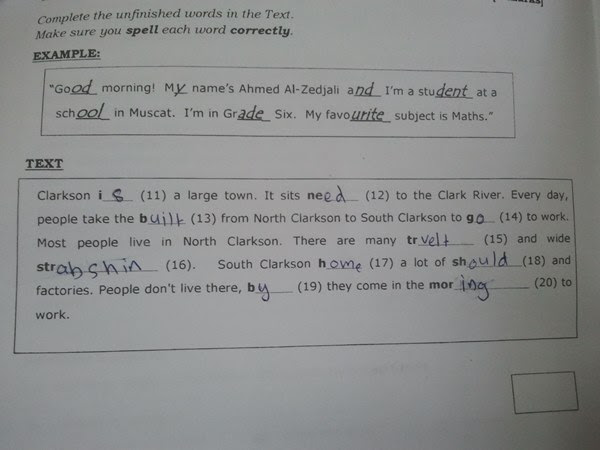 Complete the unfinished words in the Text.
Make sure you spell each word correctly.
EXAMPLE:
"Good morning! My name's Ahmed Al-Zedjali and I'm a student at a
school in Muscat. I'm in Grade Six. My favourite subject is Maths."
TEXT
Clarkson is (11) a large town. It sits need (12) to the Clark River. Every day,
people take the built (13) from North Clarkson to South Clarkson to go (14) to work.
Most people live in North Clarkson. There are many trvelt (15) and wide
strabshin (16). South Clarkson home (17) a lot of should (18) and
factories. People don't live there, by (19) they come in the moring (20) to
work.